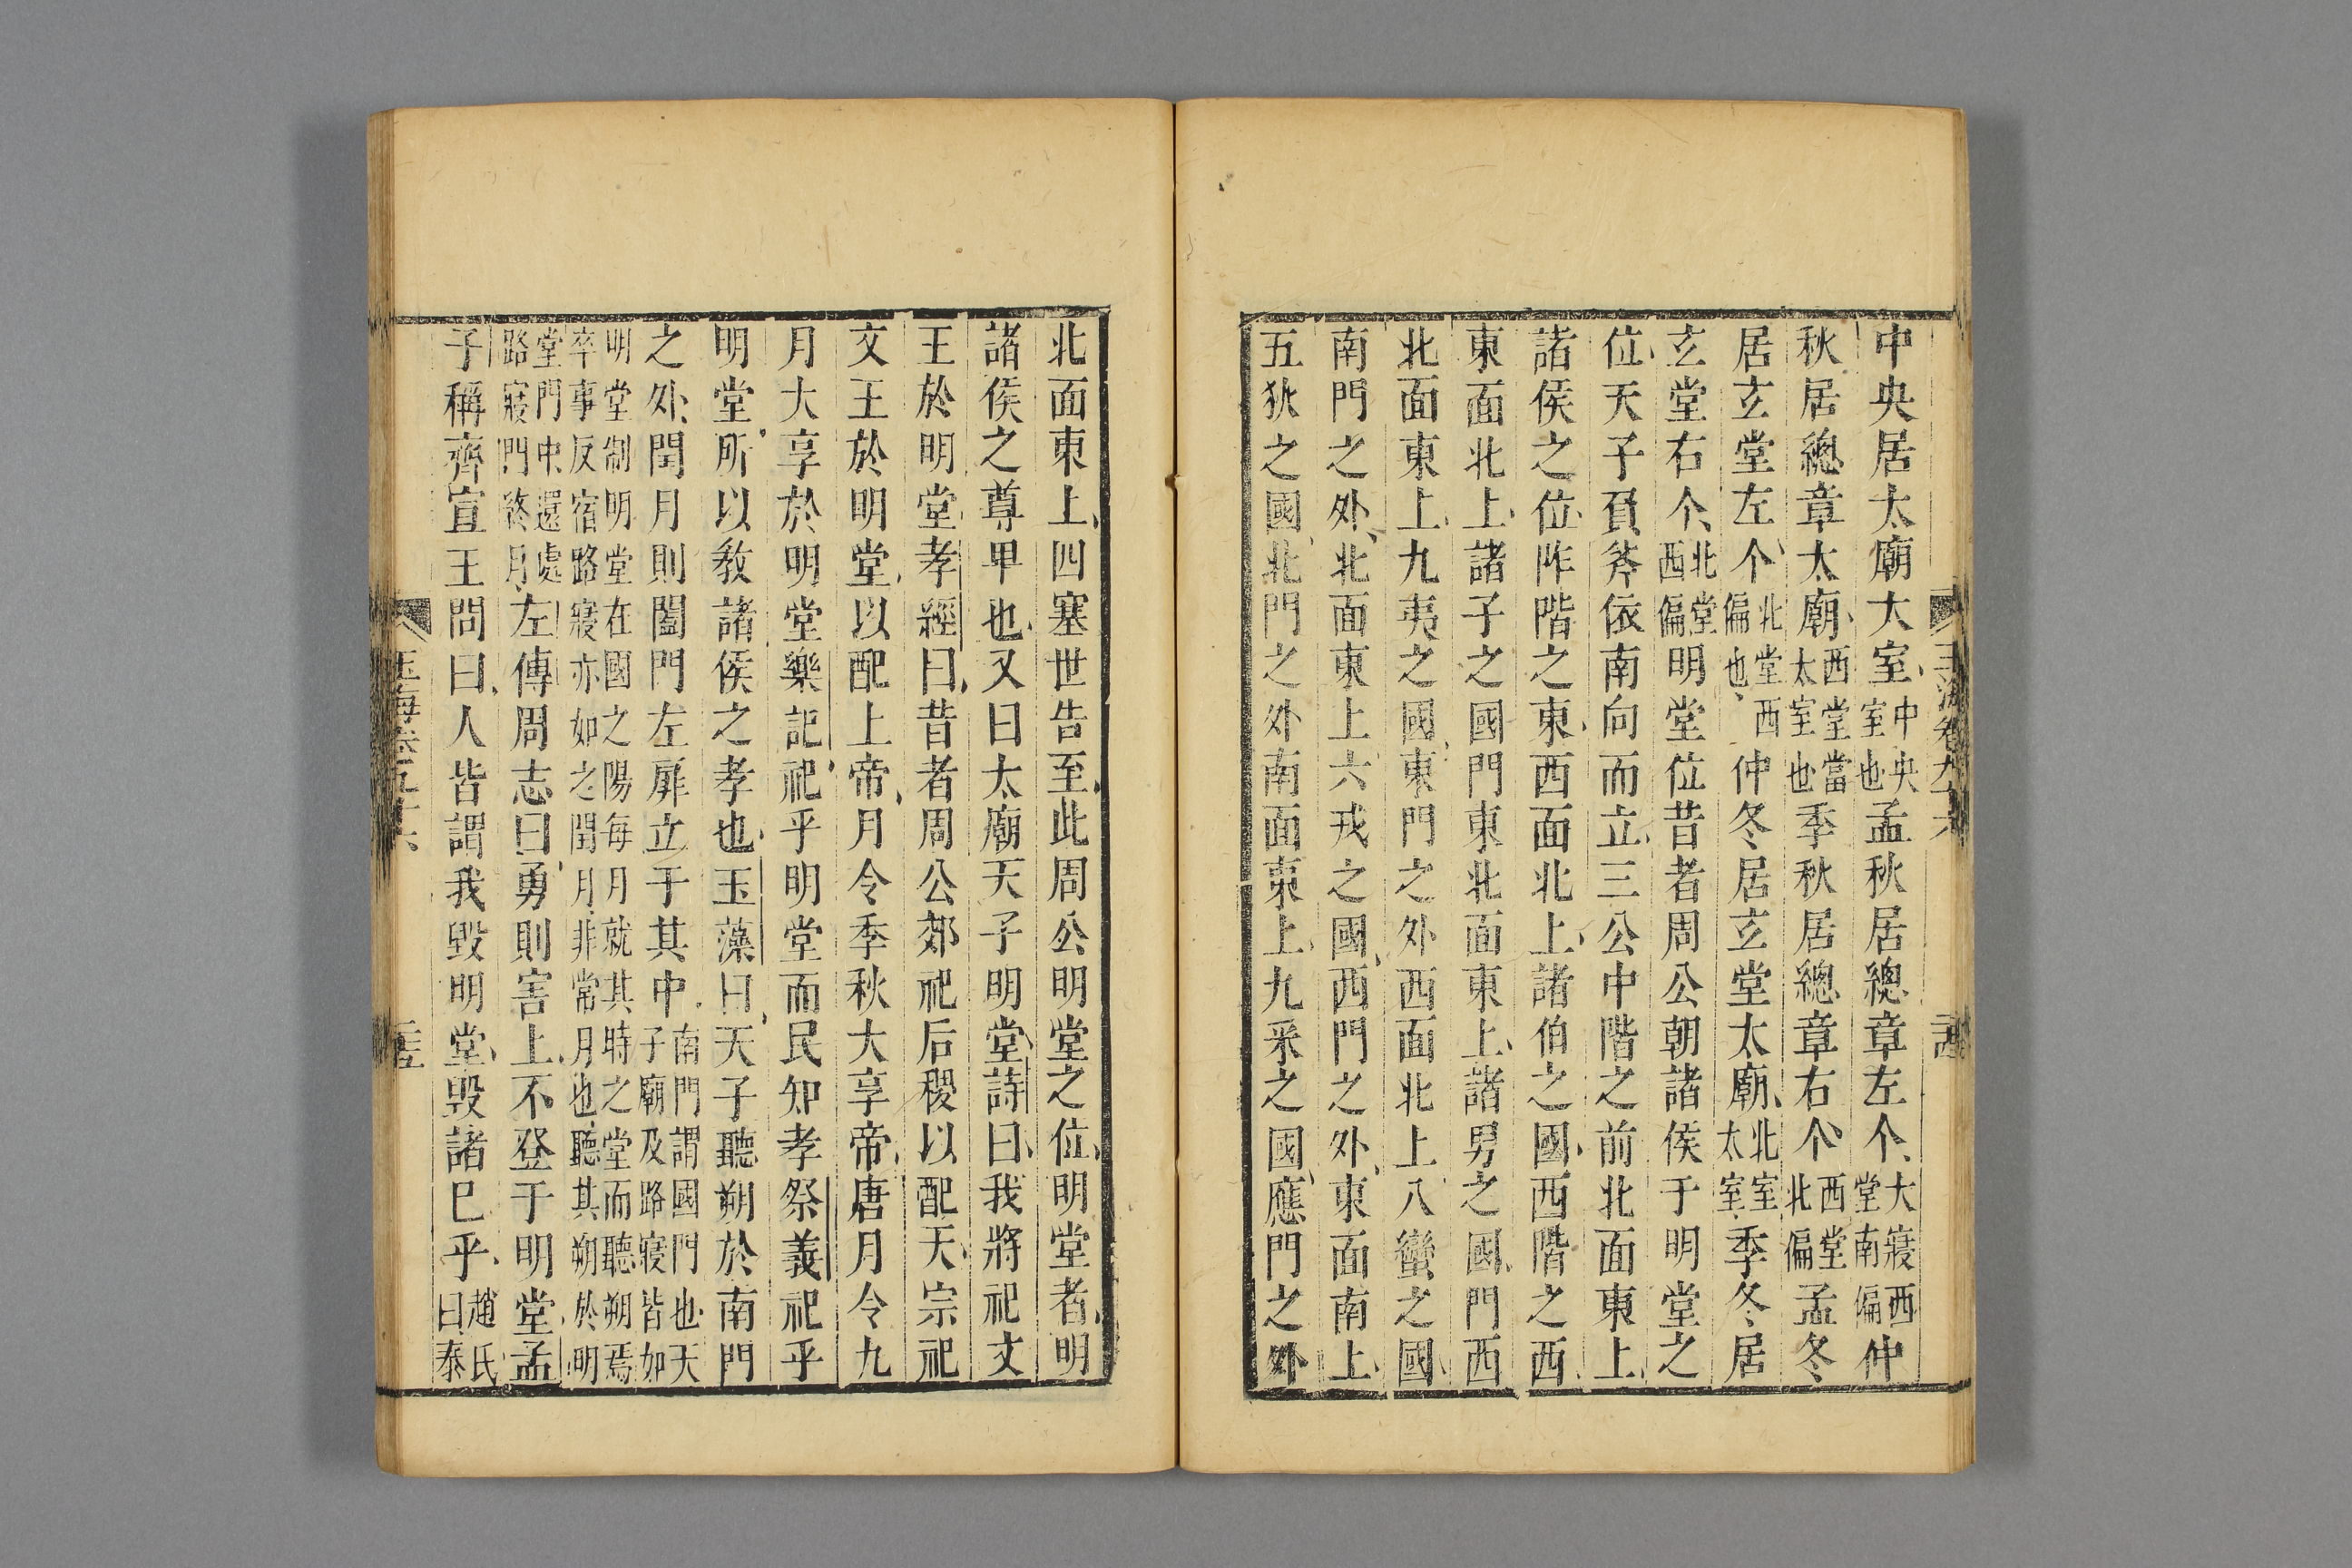 中央居太廟大室中央室也孟秋居總章左个大寢西堂南偏仲
秋居總章太廟西堂當太室也季秋居總章右个西堂北偏孟冬
居玄堂左个北堂西偏也仲冬居玄堂太廟北室太室季冬居
玄堂右个北堂西偏明堂位昔者周公朝諸侯于明堂之
位天子負斧依南向而立三公中階之前北面東上
諸侯之位阼階之東西面北上諸伯之國西階之西
東面北上諸子之國門東北面東上諸男之國門西
北面東上九夷之國東門之外西面北上八蠻之國
南門之外北面東上六戎之國西門之外東面南上
五狄之國北門之外南面東上九采之國應門之外
北面東上四塞世告至此周公明堂之位明堂者明
諸侯之尊卑也又曰太廟天子明堂詩曰我將祀文
王於明堂孝經曰昔者周公郊祀后稷以配天宗祀
文王於明堂以配上帝月令季秋大享帝唐月令九
月大享於明堂樂記祀乎明堂而民知孝祭義祀乎
明堂所以敎諸侯之孝也玉藻曰天子聽朔於南門
之外閏月則闔門左扉立于其中南門謂國門也天子廟及路寢皆如
明堂制明堂在國之陽每月就其時之堂而聽朔焉
卒事反宿路寢亦如之閏月非常月也聽其朔於明
堂門中還處路寢門終月左傳周志曰勇則害上不登于明堂孟
子稱齊宣王問曰人皆謂我毀明堂毀諸巳乎趙氏曰泰
玉海卷五十六